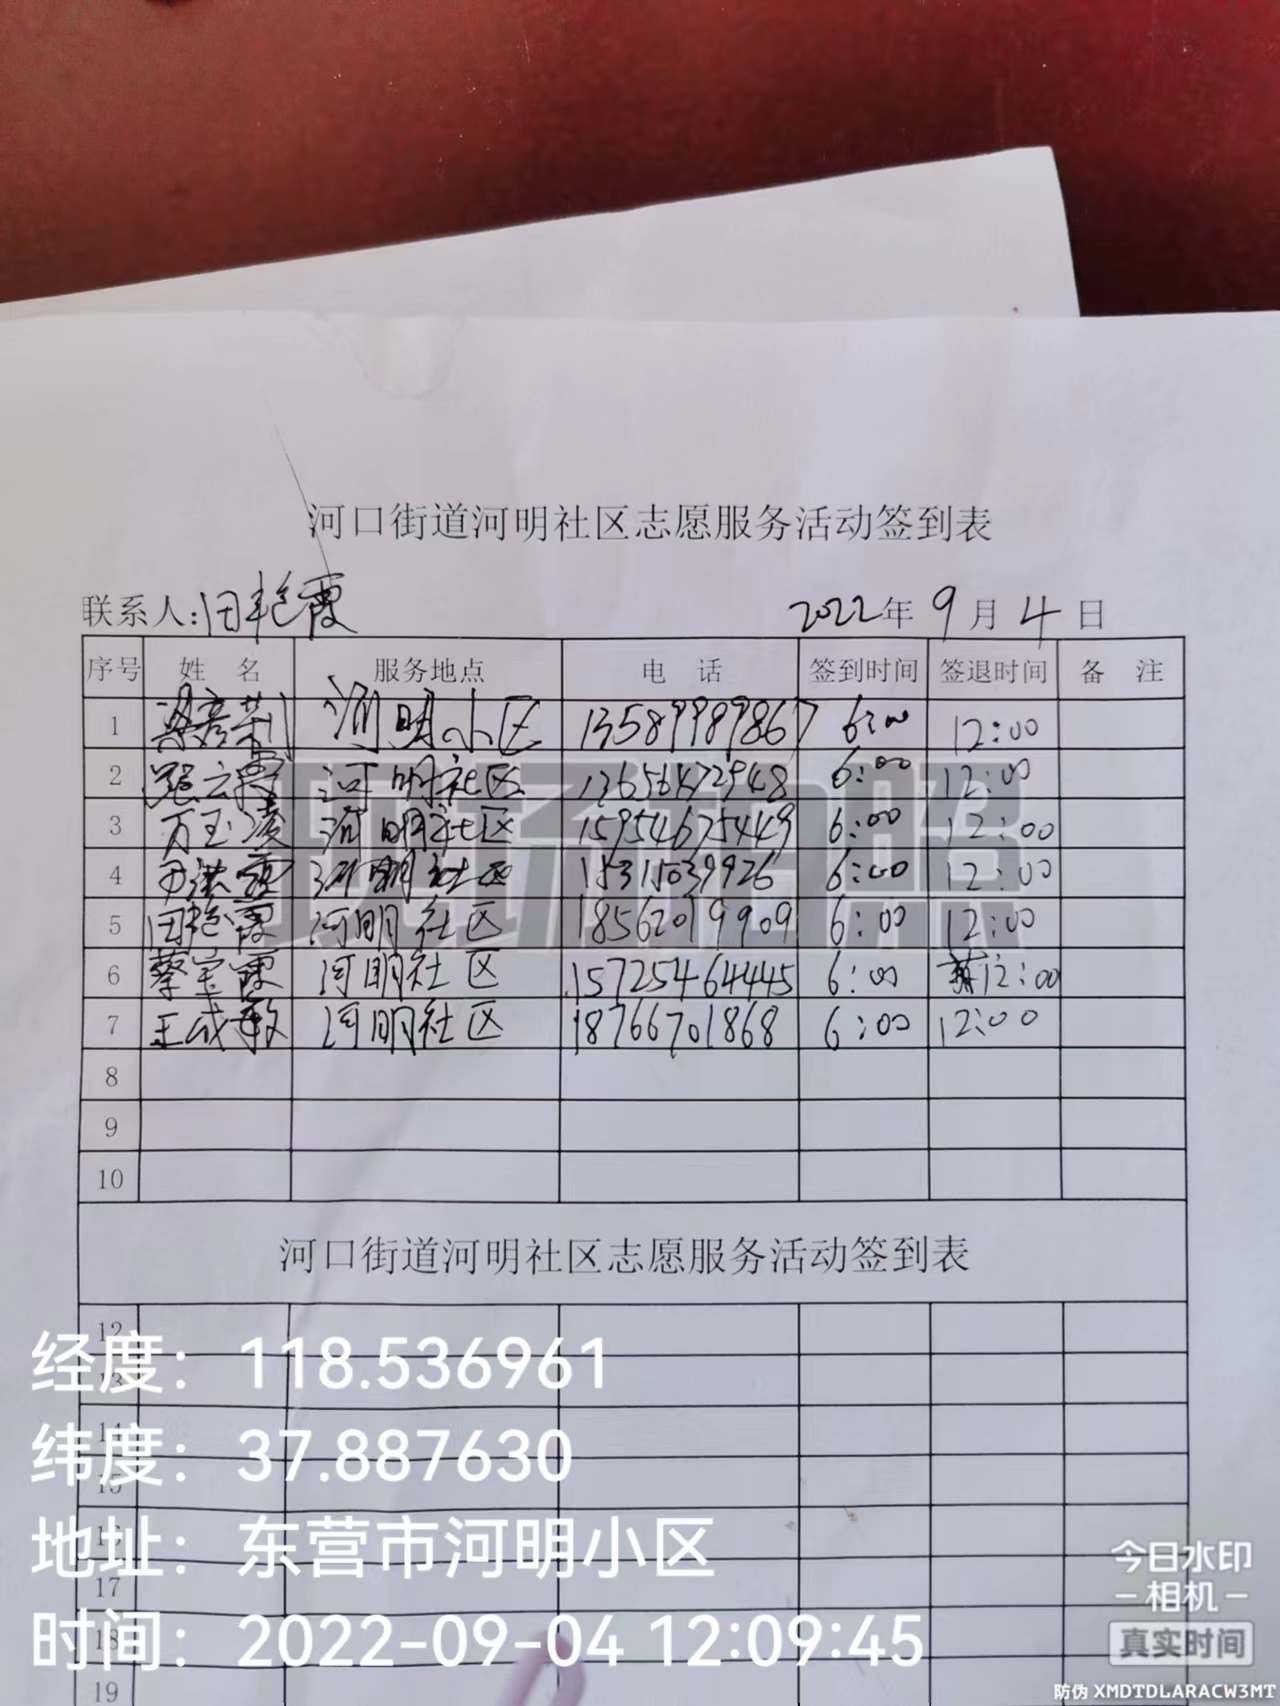 河口街道河明社区志愿服务活动签到表
联系人:田艳霞 2022年 9月 4日
序号 姓 名 服务地点 电 话 签到时间 签退时间 备 注
1 梁彦荣 河明小区 13589989867 6:00 12:00
2 云霞 河明社区 13656472948 6:00 12:00
3 万玉凌 河明社区 15954675449 6:00 12:00
4 河明社区 15315039926 6:00 12:00
5 田艳霞 河明社区 18562019909 6:00 12:00
6 蔡宝霞 河明社区 15725464445 6:00 12:00
7 王成敏 河明社区 18766701868 6:00 12:00
8
9
10
现场拍照
河口街道河明社区志愿服务活动签到表
12
13
14
15
16
17
18
19
经度：118.536961
纬度：37.887630
地址：东营市河明小区
时间：2022-09-04 12:09:45
今日水印
相机
真实时间
防伪 XMDTDLARACW3MT